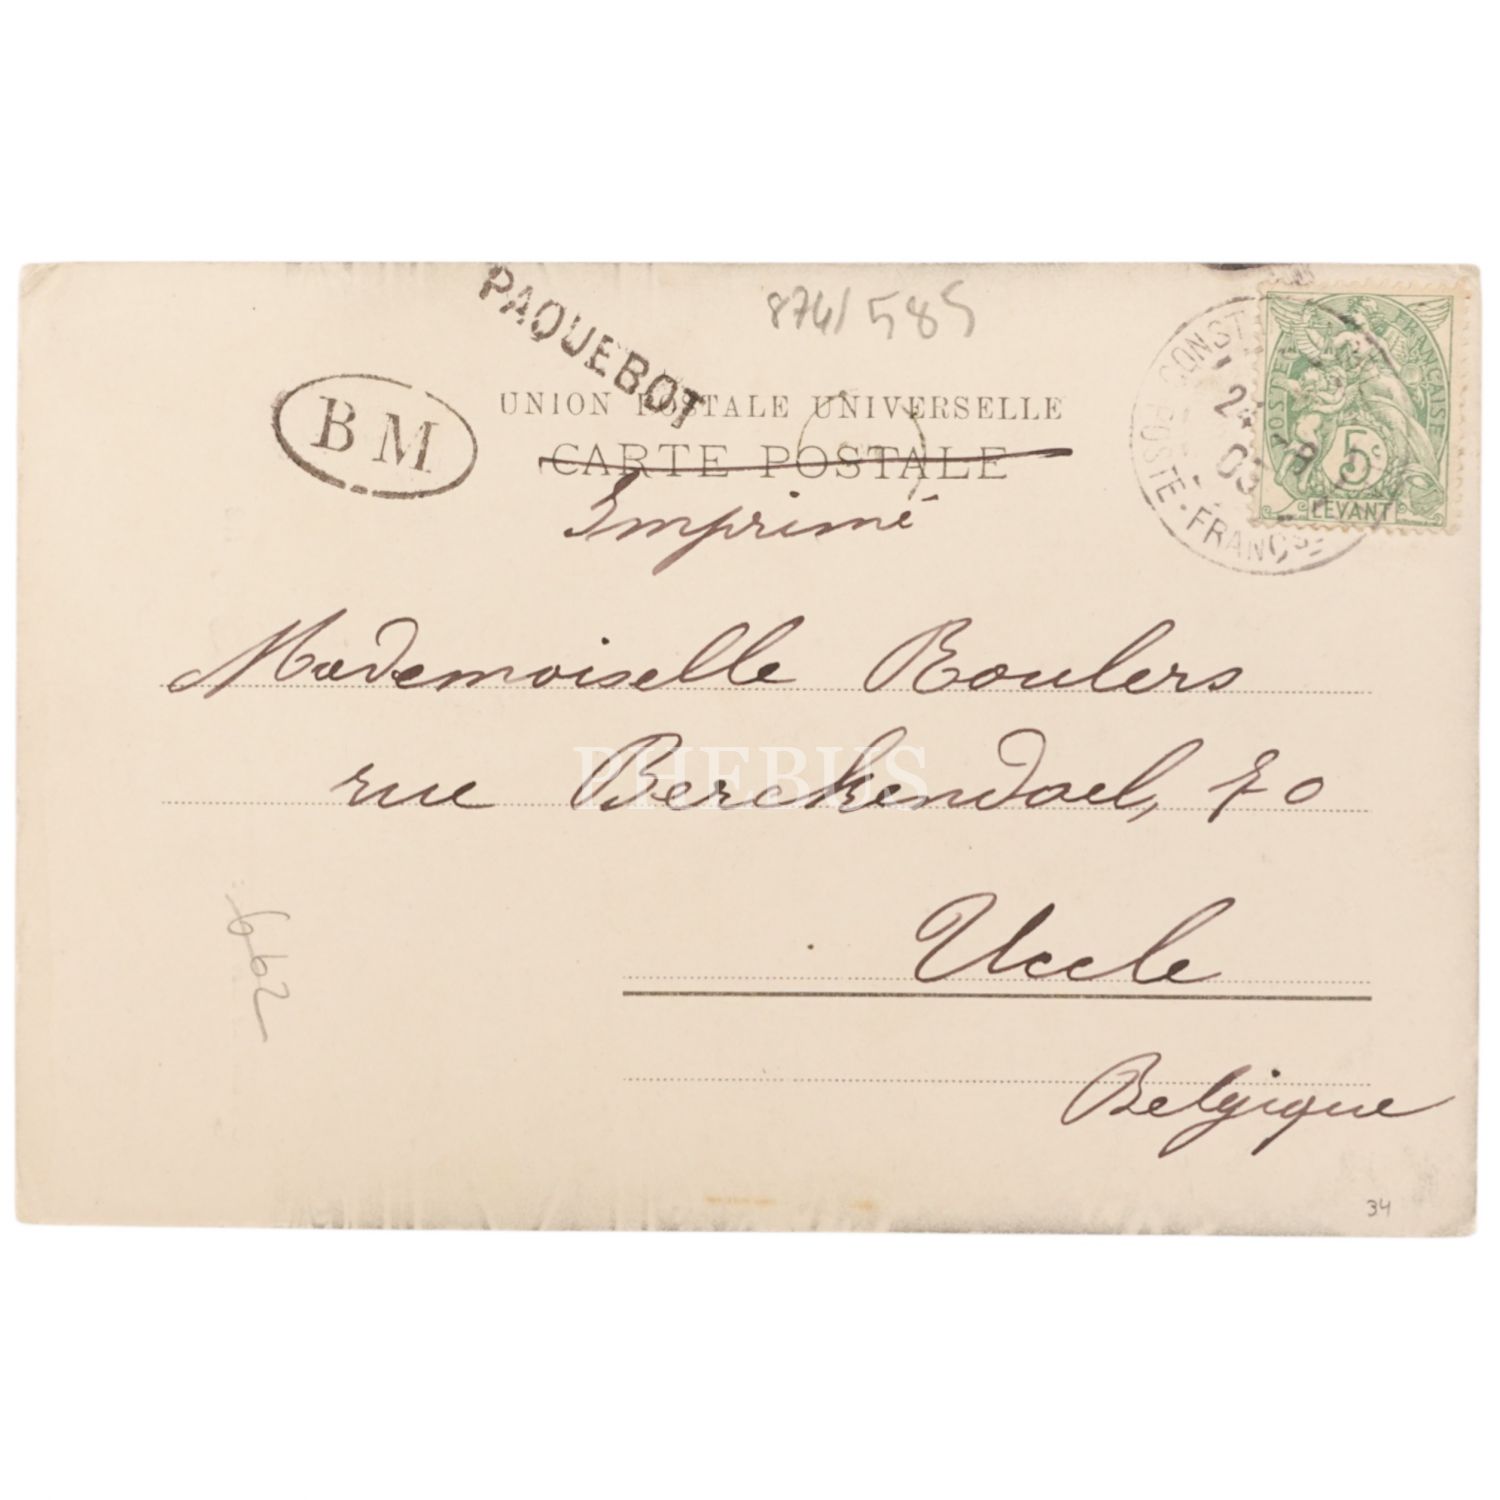 PAQUEBOT
874/585
BM
UNION POSTALE UNIVERSELLE
CARTE POSTALE
Imprimé
CONST
24
9
03
POSTE · FRANÇSE
POSTE FRANÇAISE
5c
LEVANT
Mademoiselle Roulers
rue Berckendael, 70
PHEBUS
Uccle
Belgique
662
34